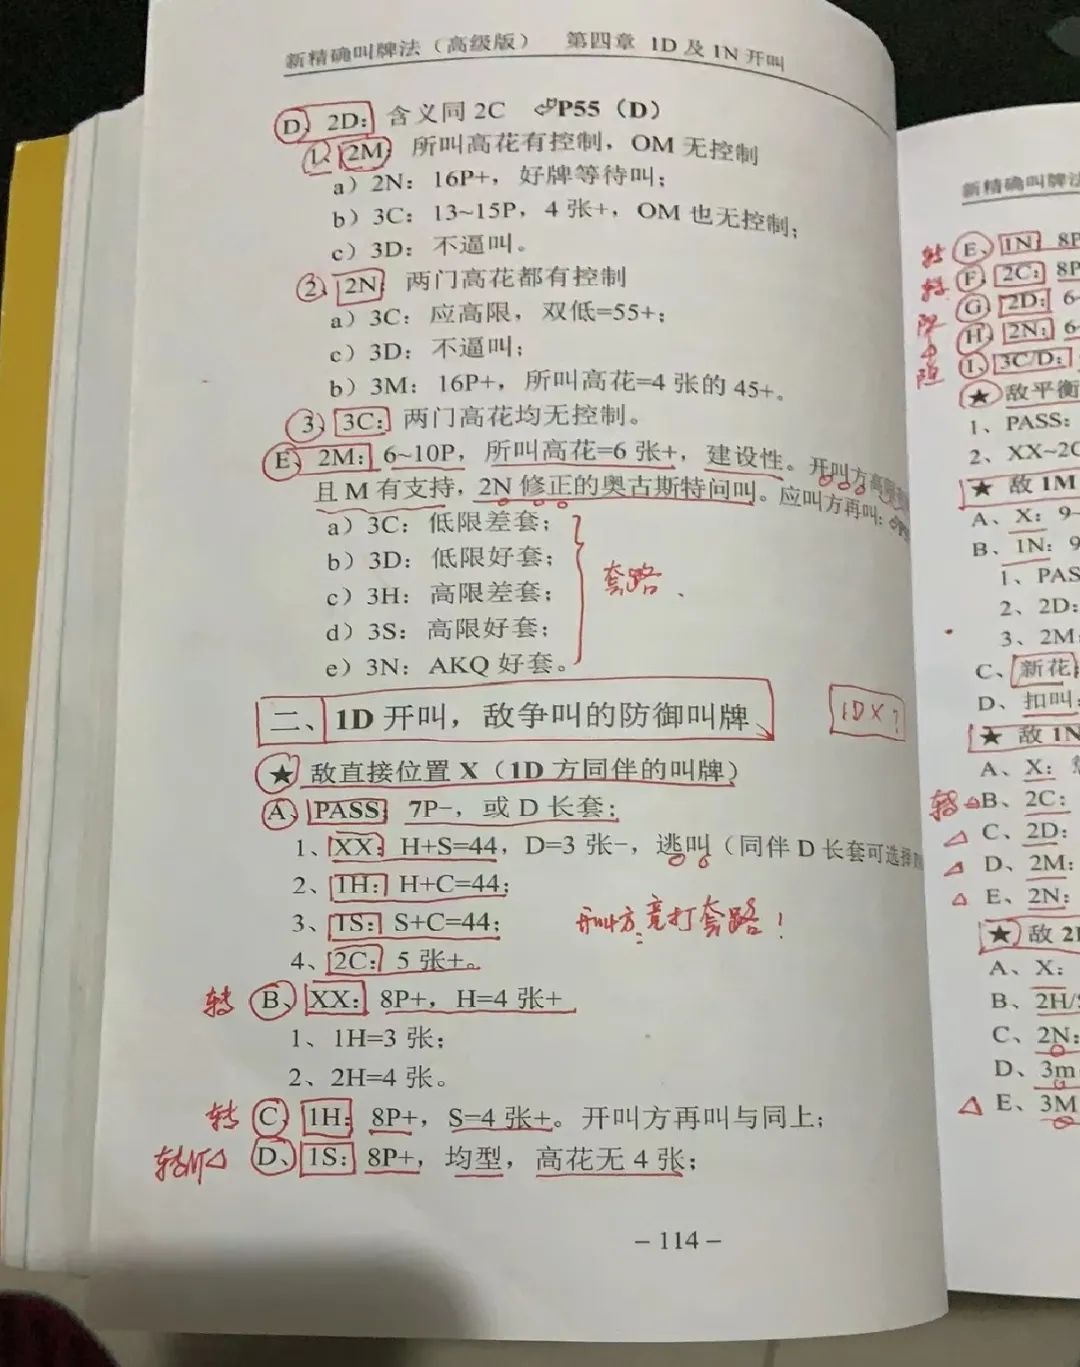 新精确叫牌法（高级版） 第四章 1D 及 1N 开叫
D、2D：含义同 2C P55（D）
1、2M：所叫高花有控制，OM 无控制
a）2N：16P+，好牌等待叫；
b）3C：13~15P，4 张+，OM 也无控制；
c）3D：不逼叫。
2、2N：两门高花都有控制
a）3C：应高限，双低=55+；
c）3D：不逼叫；
b）3M：16P+，所叫高花=4 张的 45+。
3、3C：两门高花均无控制。
E、2M：6~10P，所叫高花=6 张+，建设性。开叫方高限
且 M 有支持，2N 修正的奥古斯特问叫。应叫方再叫：
a）3C：低限差套；
b）3D：低限好套；
c）3H：高限差套；
d）3S：高限好套；
e）3N：AKQ 好套。
套路、
二、1D 开叫，敌争叫的防御叫牌
1D X？
★ 敌直接位置 X（1D 方同伴的叫牌）
A、PASS：7P−，或 D 长套：
1、XX：H+S=44，D=3 张−，逃叫（同伴 D 长套可选择
2、1H：H+C=44；
3、1S：S+C=44；
开叫方：竞打套路！
4、2C：5 张+。
转 B、XX：8P+，H=4 张+
1、1H=3 张；
2、2H=4 张。
转 C、1H：8P+，S=4 张+。开叫方再叫与同上；
转NT△ D、1S：8P+，均型，高花无 4 张；
– 114 –
新精确叫牌法
转 E、1N：8P
转 F、2C：8P
阻 G、2D：6-
△ H、2N：6-
阻 I、3C/D：
★ 敌平衡
1、PASS：
2、XX~2C
★ 敌 1M
A、X：9-
B、1N：9
1、PAS
2、2D：
3、2M：
C、新花
D、扣叫：
★ 敌 1N
A、X：
转△B、2C：
△ C、2D：
△ D、2M：
△ E、2N：
★ 敌 2
A、X：
B、2H/
C、2N：
D、3m
△ E、3M